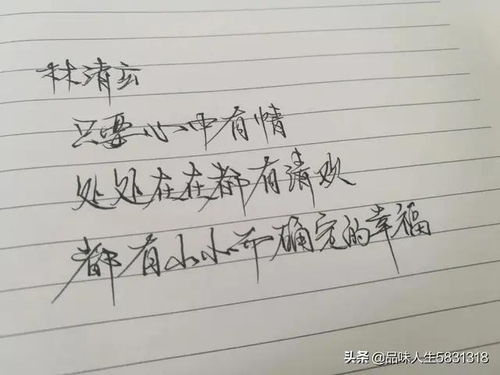 林清玄
只要心中有情
处处在在都有清欢
都有小小而确定的幸福
头条 @品味人生5831318